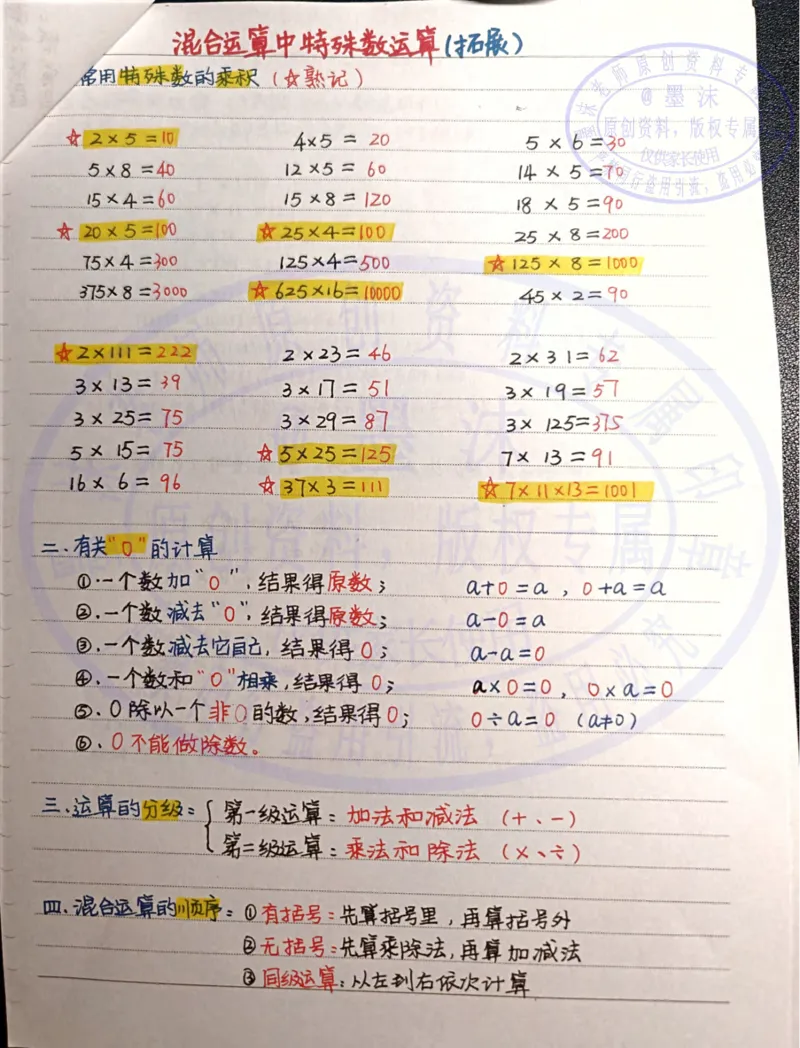 混合运算中特殊数运算(拓展)
常用特殊数的乘积（☆熟记）
☆ 2×5=10 4×5=20 5×6=30
5×8=40 12×5=60 14×5=70
15×4=60 15×8=120 18×5=90
☆ 20×5=100 ☆ 25×4=100 25×8=200
75×4=300 125×4=500 ☆ 125×8=1000
375×8=3000 ☆ 625×16=10000 45×2=90
☆ 2×111=222 2×23=46 2×31=62
3×13=39 3×17=51 3×19=57
3×25=75 3×29=87 3×125=375
5×15=75 ☆ 5×25=125 7×13=91
16×6=96 ☆ 37×3=111 ☆ 7×11×13=1001
二.有关“0”的计算
①.一个数加“0”,结果得原数; a+0=a , 0+a=a
②.一个数减去“0”,结果得原数; a-0=a
③.一个数减去它自己,结果得0; a-a=0
④.一个数和“0”相乘,结果得0; a×0=0, 0×a=0
⑤.0除以一个非0的数,结果得0; 0÷a=0 (a≠0)
⑥.0不能做除数。
三.运算的分级: 第一级运算: 加法和减法 (+、-)
第二级运算: 乘法和除法 (×、÷)
四.混合运算的顺序: ①有括号:先算括号里,再算括号外
②无括号:先算乘除法,再算加减法
③同级运算:从左到右依次计算
@墨沫
原创资料，版权专属
仅供家长使用